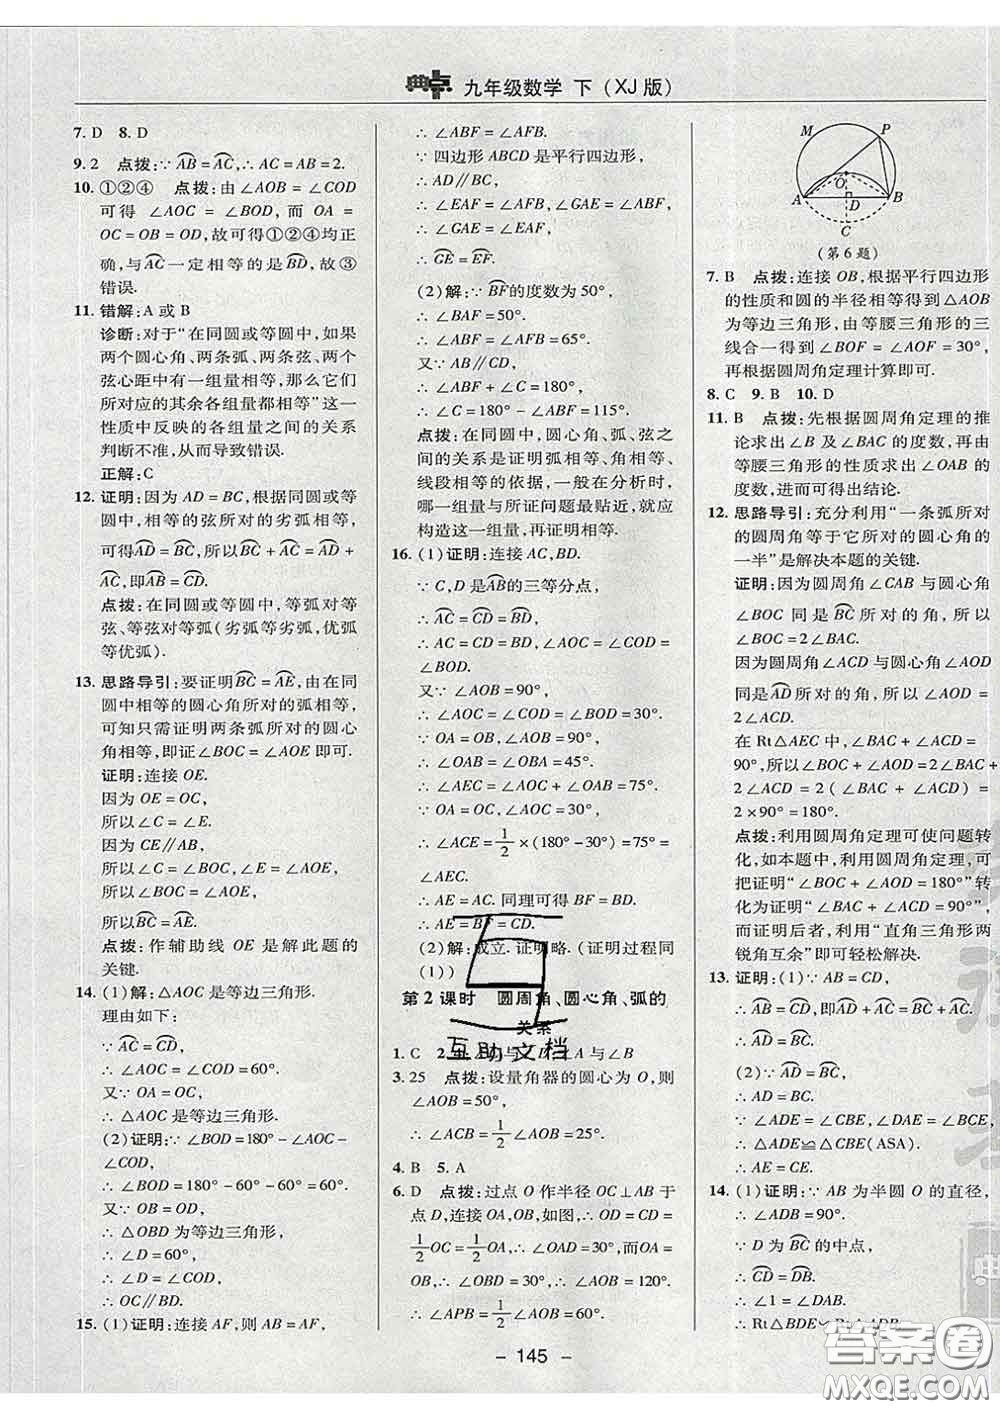 典点 九年级数学 下(XJ版)
7. D 8. D
9. 2 点拨:∵AB=AC,∴AC=AB=2.
10. ①②④ 点拨:由∠AOB=∠COD
可得 ∠AOC=∠BOD,而 OA=
OC=OB=OD,故可得①②④均正
确,与AC一定相等的是BD,故③
错误.
11. 错解:A 或 B
诊断:对于“在同圆或等圆中,如果
两个圆心角、两条弧、两条弦、两个
弦心距中有一组量相等,那么它们
所对应的其余各组量都相等”这一
性质中反映的各组量之间的关系
判断不准,从而导致错误.
正解:C
12. 证明:因为 AD=BC,根据同圆或等
圆中,相等的弦所对的劣弧相等,
可得AD=BC,所以BC+AC=AD+
AC,即AB=CD.
点拨:在同圆或等圆中,等弧对等
弦、等弦对等弧(劣弧等劣弧,优弧
等优弧).
13. 思路导引:要证明BC=AE,由在同
圆中相等的圆心角所对的弧相等,
可知只需证明两条弧所对的圆心
角相等,即证∠BOC=∠AOE即可.
证明:连接 OE.
因为 OE=OC,
所以∠C=∠E.
因为 CE∥AB,
所以∠C=∠BOC,∠E=∠AOE,
所以∠BOC=∠AOE,
所以BC=AE.
点拨:作辅助线 OE 是解此题的
关键.
14. (1)解:△AOC 是等边三角形.
理由如下:
∵AC=CD,
∴∠AOC=∠COD=60°.
又∵OA=OC,
∴△AOC 是等边三角形.
(2)证明:∵∠BOD=180°-∠AOC-
∠COD,
∴∠BOD=180°-60°-60°=60°.
又∵OB=OD,
∴△OBD 为等边三角形,
∴∠D=60°,
∴∠D=∠COD,
∴OC∥BD.
15. (1)证明:连接 AF,则 AB=AF,
∴∠ABF=∠AFB.
∵四边形 ABCD 是平行四边形,
∴AD∥BC,
∴∠EAF=∠AFB,∠GAE=∠ABF,
∴∠GAE=∠EAF,
∴GE=EF.
(2)解:∵BF的度数为50°,
∴∠BAF=50°.
∴∠ABF=∠AFB=65°.
又∵AB∥CD,
∴∠ABF+∠C=180°,
∴∠C=180°-∠ABF=115°.
点拨:在同圆中,圆心角、弧、弦之
间的关系是证明弧相等、角相等、
线段相等的依据,一般在分析时,
哪一组量与所证问题最贴近,就应
构造这一组量,再证明相等.
16. (1)证明:连接 AC,BD.
∵C,D 是AB的三等分点,
∴AC=CD=BD,
∴AC=CD=BD,∠AOC=∠COD=
∠BOD.
又∵∠AOB=90°,
∴∠AOC=∠COD=∠BOD=30°.
∵OA=OB,∠AOB=90°,
∴∠OAB=∠OBA=45°.
∴∠AEC=∠AOC+∠OAB=75°.
∵OA=OC,∠AOC=30°,
∴∠ACE=1/2×(180°-30°)=75°=
∠AEC.
∴AE=AC. 同理可得 BF=BD.
∴AE=BF=CD.
(2)解:成立. 证明略.(证明过程同
(1))
第2课时 圆周角、圆心角、弧的
关系
互助文档
1. C 2. ∠C与∠D,∠A 与∠B
3. 25 点拨:设量角器的圆心为 O,则
∠AOB=50°,
∴∠ACB=1/2∠AOB=25°.
4. B 5. A
6. D 点拨:过点 O 作半径 OC⊥AB 于
点 D,连接 OA,OB,如图,∴OD=CD=
1/2OC=1/2OA,∴∠OAD=30°,而OA=
OB,∴∠OBD=30°,∴∠AOB=120°,
∴∠APB=1/2∠AOB=60°.
M P O A D B C
(第6题)
7. B 点拨:连接 OB,根据平行四边形
的性质和圆的半径相等得到△AOB
为等边三角形,由等腰三角形的三
线合一得到∠BOF=∠AOF=30°,
再根据圆周角定理计算即可.
8. C 9. B 10. D
11. B 点拨:先根据圆周角定理的推
论求出∠B 及∠BAC 的度数,再由
等腰三角形的性质求出∠OAB 的
度数,进而可得出结论.
12. 思路导引:充分利用“一条弧所对
的圆周角等于它所对的圆心角的
一半”是解决本题的关键.
证明:因为圆周角∠CAB 与圆心角
∠BOC 同是BC所对的角,所以
∠BOC=2∠BAC.
因为圆周角∠ACD与圆心角∠AOD
同是AD所对的角,所以∠AOD=
2∠ACD.
在 Rt△AEC 中,∠BAC+∠ACD=
90°,所以∠BOC+∠AOD=2∠BAC+
2∠ACD=2(∠BAC+∠ACD)=
2×90°=180°.
点拨:利用圆周角定理可使问题转
化,如本题中,利用圆周角定理,可
把证明“∠BOC+∠AOD=180°”转
化为证明“∠BAC+∠ACD=90°”,
而证明后者,利用“直角三角形两
锐角互余”可轻松解决.
13. 证明:(1)∵AB=CD,
∴AB=CD,即AD+AC=BC+AC,
∴AD=BC.
(2)∵AD=BC,
∴AD=BC.
∵∠ADE=∠CBE,∠DAE=∠BCE,
∴△ADE≌△CBE(ASA).
∴AE=CE.
14. (1)证明:∵AB 为半圆 O 的直径,
∴∠ADB=90°.
∵D 为BC的中点,
∴CD=DB.
∴∠1=∠DAB.
- 145 -
答案圈
MXQE.COM